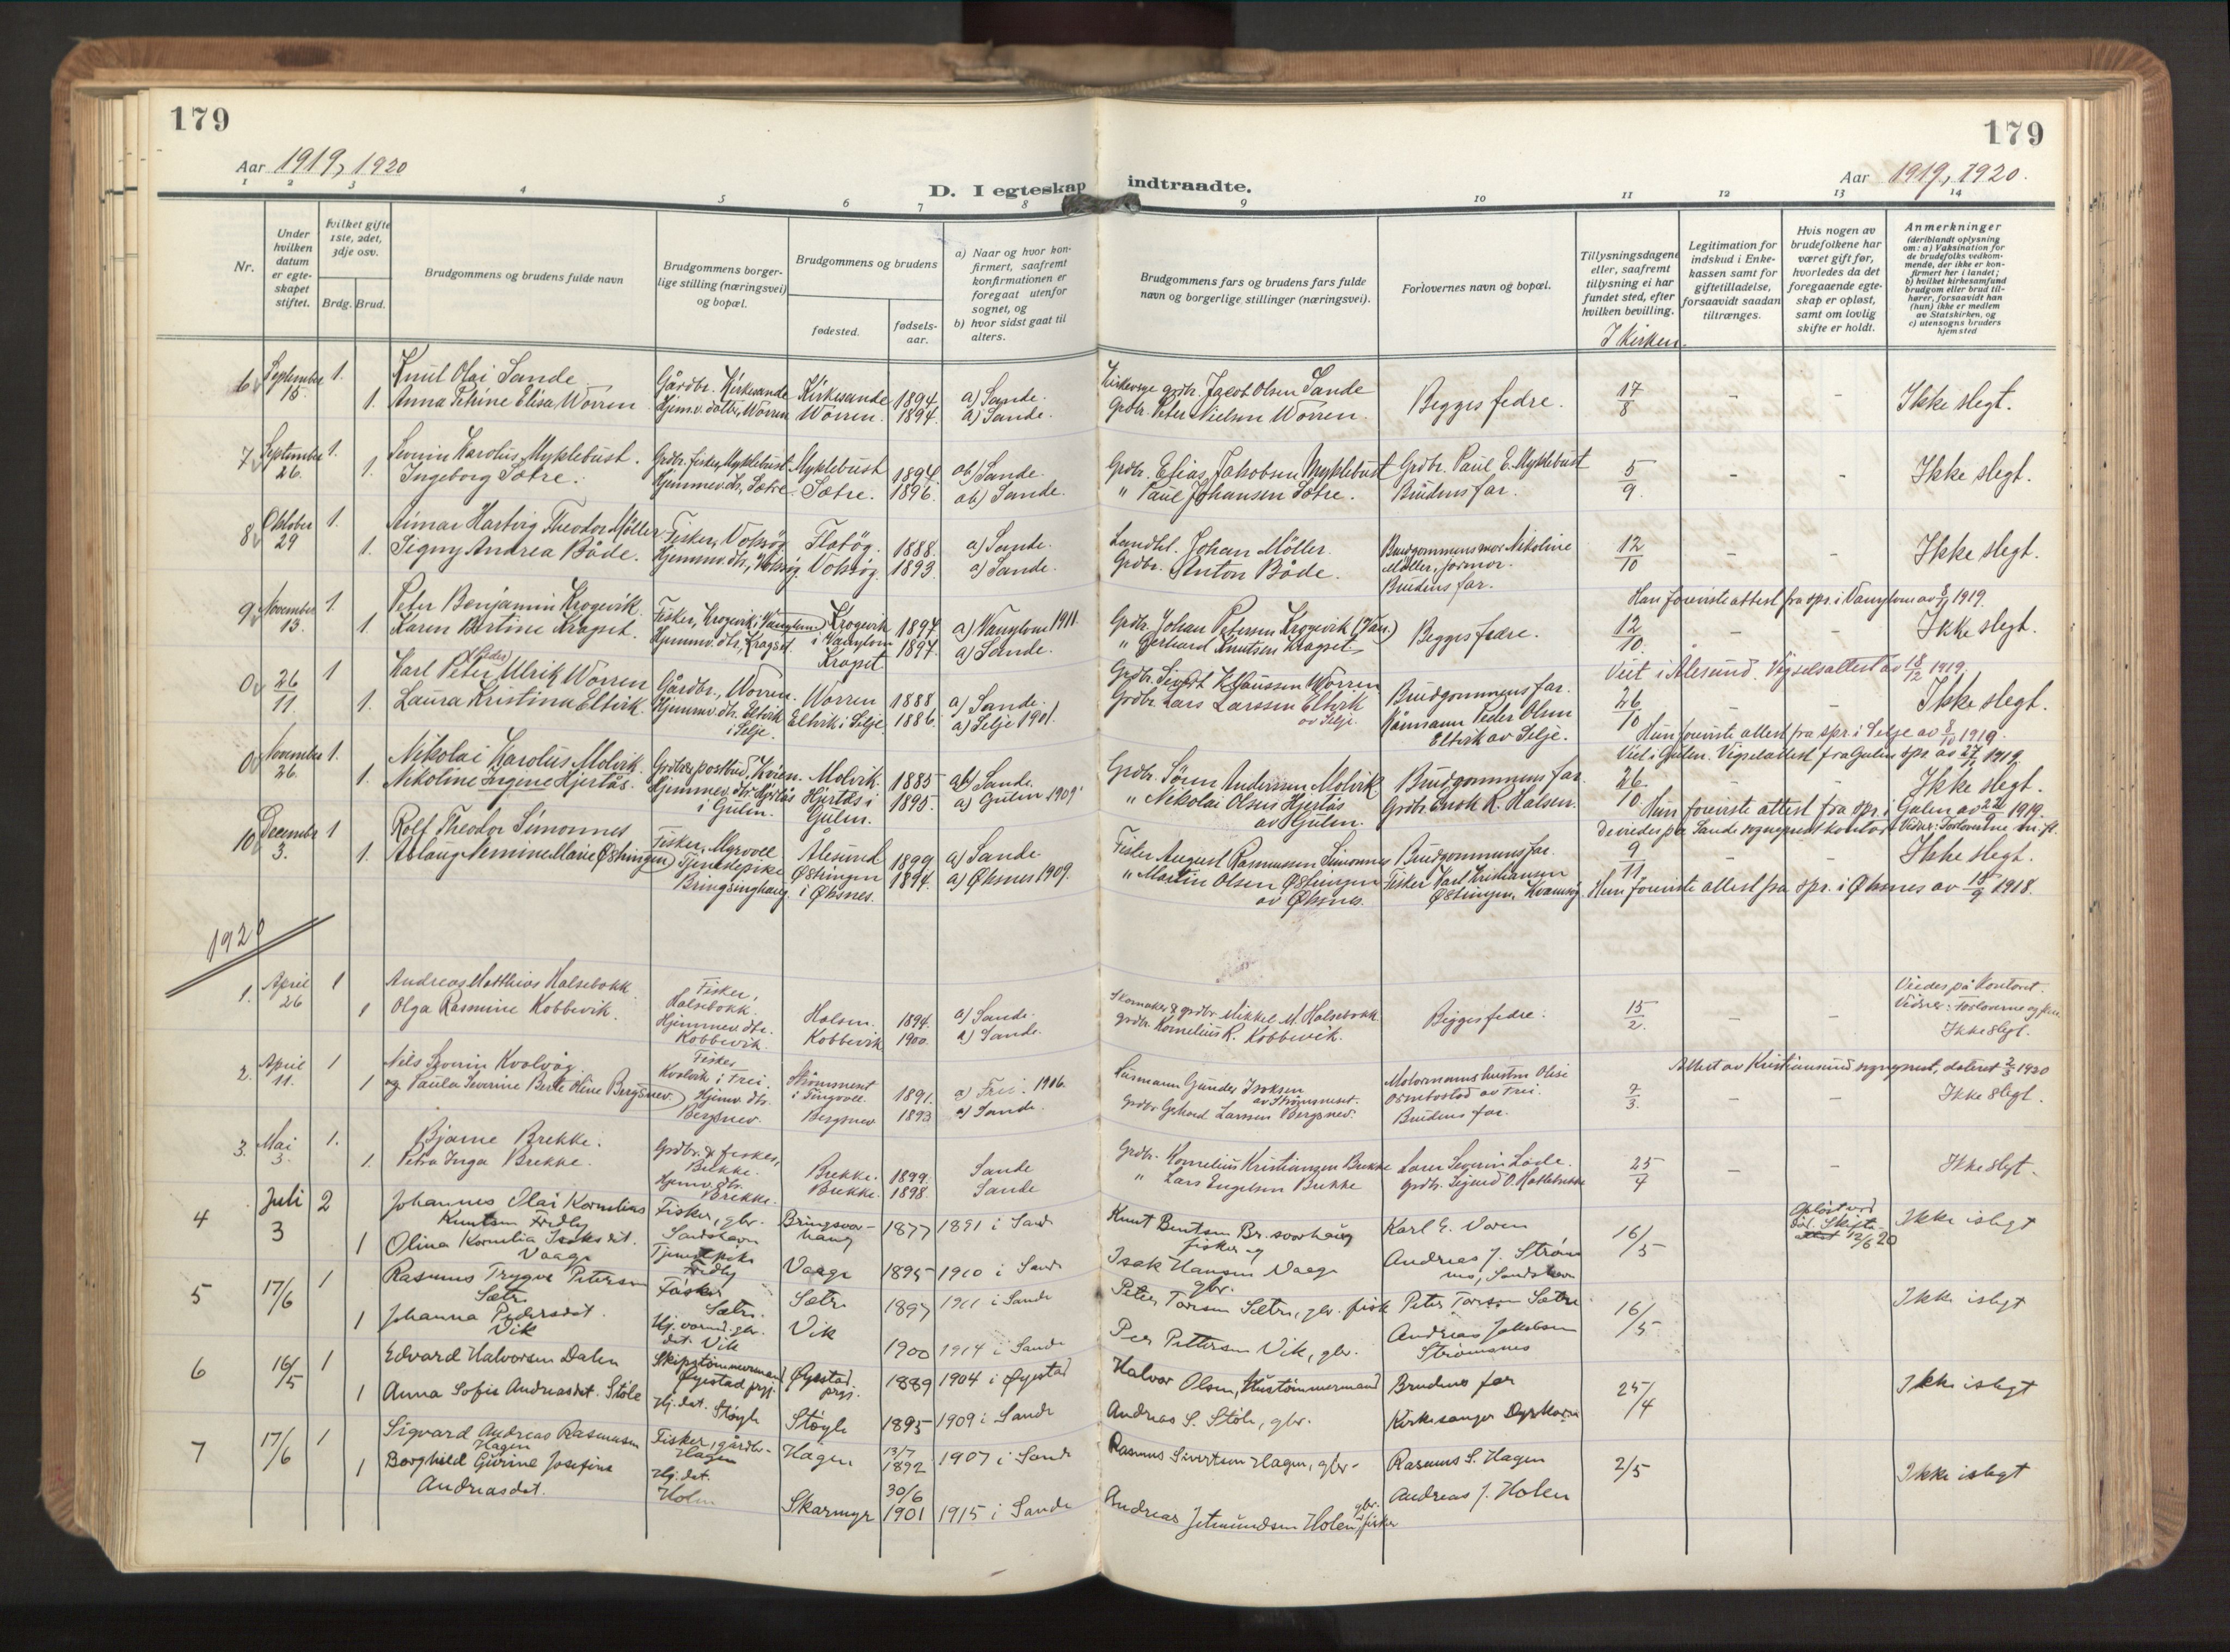 179
179
Aar 1919, 1920
Aar 1919, 1920.
D. I egteskap indtraadte.
1 2 3 4 5 6 7 8 9 10 11 12 13 14
Nr.
Under hvilken datum er egte-skapet stiftet.
hvilket gifte 1ste, 2det, 3dje osv.
Brdg. Brud.
Brudgommens og brudens fulde navn
Brudgommens borger-lige stilling (næringsvei) og bopæl.
Brudgommens og brudens
fødested.
fødsels-aar.
a) Naar og hvor kon-firmert, saafremt konfirmationen er foregaat utenfor sognet, og
b) hvor sidst gaat til alters.
Brudgommens fars og brudens fars fulde navn og borgerlige stillinger (næringsvei).
Forlovernes navn og bopæl.
Tillysningsdagene eller, saafremt tillysning ei har fundet sted, efter hvilken bevilling.
Legitimation for indskud i Enke-kassen samt for giftetilladelse, forsaavidt saadan tiltrænges.
Hvis nogen av brudefolkene har været gift før, hvorledes da det foregaaende egte-skap er opløst, samt om lovlig skifte er holdt.
Anmerkninger (deriblandt oplysning om: a) Vaksination for de brudefolks vedkom-mende, der ikke er kon-firmert her i landet; b) hvilket kirkesamfund brudgom eller brud til-hører, forsaavidt han (hun) ikke er medlem av Statskirken, og c) utensogns bruders hjemsted
I Kirken.
6 September 15. 1. Knut Olai Sande Gårdbr. Kirkesande Kirkesande 1894 a) Sande. Kirkeverge grdbr. Jacob Olsen Sande Begges fedre. 17/8 - - Ikke slegt.
1. Anna Petrine Elisa Worren Hjemv. datter, Worren Worren. 1894. a) Sande. Grdbr. Peter Nielsen Worren.
7 September 26. 1. Severin Karolus Myklebust. Grdbr. fisker, Myklebust Myklebust 1894. ab) Sande. Grdbr. Elias Jakobsen Myklebust Grdbr. Paul E. Myklebust 5/9. - - Ikke slegt.
1. Ingeborg Sætre. Hjemmev. dtr, Sætre. Sætre. 1896. ab) Sande. " Paul Johansen Sætre. Brudens far.
8 Oktober 29 1. Hartvig Theodor Møller Fisker, Voksøg. Flatøg. 1888. a) Sande. Landhl. Johan Møller. Brudgommens mor Nikoline Møller, formor. 12/10 - - Ikke slegt.
1. Signy Andrea Både. Hjemmev. dtr, Voksøg. Voksøg. 1893. a) Sande. Grdbr. Anton Både. Brudens far.
9 November 13. 1. Peter Benjamin Krogevik. Fisker, Krogevik i Vanylven Krogevik i Vanylven 1894 a) Vanylven 1911. Grdbr. Johan Petersen Krogevik (Van.) Begges fedre. 12/10. - - Ikke slegt.
Han foreviste attest fra spr. i Vanylven av 8/11 1919.
1. Karen Bertine Kragset. Hjemmv. dtr, Kragset. Kragset 1897. a) Sande. " Gerhard Knutsen Kragset
0 26/11. 1 Karl Peter (Peder) Ulrik Worren Gårdbr., Worren. Worren 1888. a) Sande. Grdbr. Sivert Klaussen Worren Brudgommens far. 26/10 - - Ikke slegt.
Viet i Ålesund. Vigselsattest av 18/12 1919.
1. Laura Kristina Eltvik. Hjemmv. dtr. Eltvik i Selje. Eltvik i Selje. 1886. a) Selje 1901. Grdbr. Lars Larssen Eltvik av Selje. Kårmann Peder Olsen Eltvik av Selje.
Hun foreviste attest fra spr. i Selje av 8/10 1919.
0 November 26. 1. Nikolai Karolus Molvik. Molvik. 1885 ab) Sande. Grdbr. Søren Anderssen Molvik. Brudgommens far. 26/10 Ikke slegt.
Viet i Gulen. Vigselattest fra Gulen spr. av 27/11 1919.
1. Nikoline Ingine Hjertås. Hjemmev. dtr. Hjertås i Gulen. Hjertås i Gulen. 1895. a) Gulen 1909. " Nikolai Olsen Hjertås av Gulen. Grdbr. Enok R. Halsen.
Hun foreviste attest fra spr. i Gulen av 22/9 1919.
10 December 3. 1 Rolf Theodor Simonnes Fisker, Myrvoll Ålesund 1899 a) Sande Fisker August Rasmussen Simonnes Brudgommens far. 9/11 - - Ikke slegt.
1. Marie Østringen Tjenestepike Bringsinghaug. Østringen i Øksnes. 1894. a) Øksnes 1909. " Martin Olsen Østringen av Øksnes. Fisker Karl Kristiansen Østringen, Kvamsøy.
Hun foreviste attest fra spr. i Øksnes av 18/9 1918.
1920
1. April 26 1 Andreas Matthias Halsebokk. Fisker, Halsebokk. Halsen. 1894. a) Sande. Skomaker & grdbr. Mikkel M. Halsebokk. Begges fedre. 15/2. - - Viedes på Kontoret.
1 Olga Rasmine Kobbevik. Hjemmev. dtr. Kobbevik. Kobbevik 1900. a) Sande. grdbr. Kornelius R. Kobbevik. Ikke slegt.
2. April 11. 1 Nils Severin Kvalvåg. Fisker Kvalvik i Frei. Strømnenet i Tingvoll. 1891. a) Frei. 1906. Gunder Isaksen av Strømsneset. av Frei. 7/3. - - Ikke slegt.
Attest av Kristiansund sogneprest, datert 2/3 1920
1 og Paula Severine Berte Oline Bergsnev. Hjemv. dtr. Bergsnev. Bergsnev 1893 a) Sande. Grdbr. Gerhard Larssen Bergsnev. Brudens far.
3. Mai 3. 1. Bjarne Brekke. Grdbr. & fisker, Brekke. Brekke. 1899. Sande Grdbr. Kornelius Kristiansen Brekke Lars Severin Lade. 25/4 - - Ikke slegt.
1. Petra Inga Brekke. Hjemv. dtr. Brekke. Brekke 1898. Sande " Lars Engelsen Brekke
4 Juli 3 2 Johannes Olai Kornelius Knutsen Fredly Fisker, gbr. Sandshavn Bringsvor-haug 1877 1891 i Sande Knut Bentsen Br.svorhaug fisker og gbr. Karl E. Voren 16/5 Opløst ved Skifte-attest 12/6 20 Ikke i slegt
1 Olina Kornelia Isaksdt. Vaage Tjenestepike Fredly Vaage 1895 1910 i Sande Isak Hansen Vaage Andreas J. Strøm-nes, Sandshavn
5 17/6 1 Rasmus Trygve Petersen Sætre Fisker Sætre. Sætre 1897 1911 i Sande Peter Torsen Sætre, gbr. fisk. Peter Torsen Sætre 16/5 Ikke i slegt
1 Johanna Pedersdt. Vik Vik Vik 1900 1914 i Sande Peer Pettersen Vik, gbr. Andreas Jakobsen Strømsnes
6 16/5 1 Edvard Halvorsen Dalen Skipstømmermand Øyestad prgj. Øyestad prgj. 1889 1904 i Øyestad Halvor Olsen, Hustømmermand Brudens far 25/4 Ikke i slegt
1 Anna Sofie Andreasdt. Støle Hj. dat. Støyle Støyle 1895 1909 i Sande Andreas S. Støle, gbr. Kirkesanger Dyrkorn
7 17/6 1 Sigvard Andreas Rasmussen Hagen Fisker, gårdbr. Hagen Hagen 13/7 1892 1907 i Sande Rasmus Sivertsen Hagen, gbr. Rasmus S. Hagen 2/5 Ikke i slegt
1 Borghild Gurine Josefine Andreasdt. Hj. dat. Holen Skarmyr 30/6 1901 1915 i Sande Andreas Jetmundsen Holen, gbr. fisker Andreas J. Holen